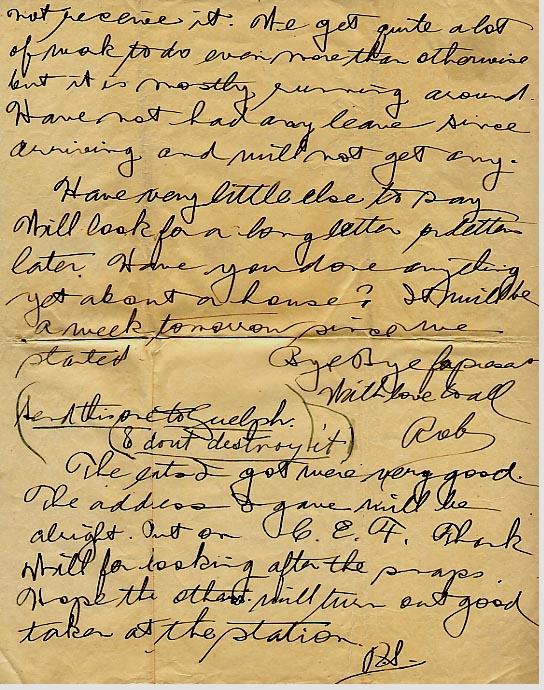 not receive it. We get quite a lot
of work to do even more than otherwise
but it is mostly running around.
Have not had any leave since
arriving and will not get any.
Have very little else to say
Will look for a long letter or letters
later. Have you done anything
yet about a house? It will be
a week tomorrow since we
started Bye Bye for present
With love to all
Rob
(Send this one to Guelph.
& dont destroy it)
The got were very good.
The address I gave will be
alright. Put on C. E. F. Thank
Will for looking after the snaps.
Hope the others will turn out good
taken at the station.